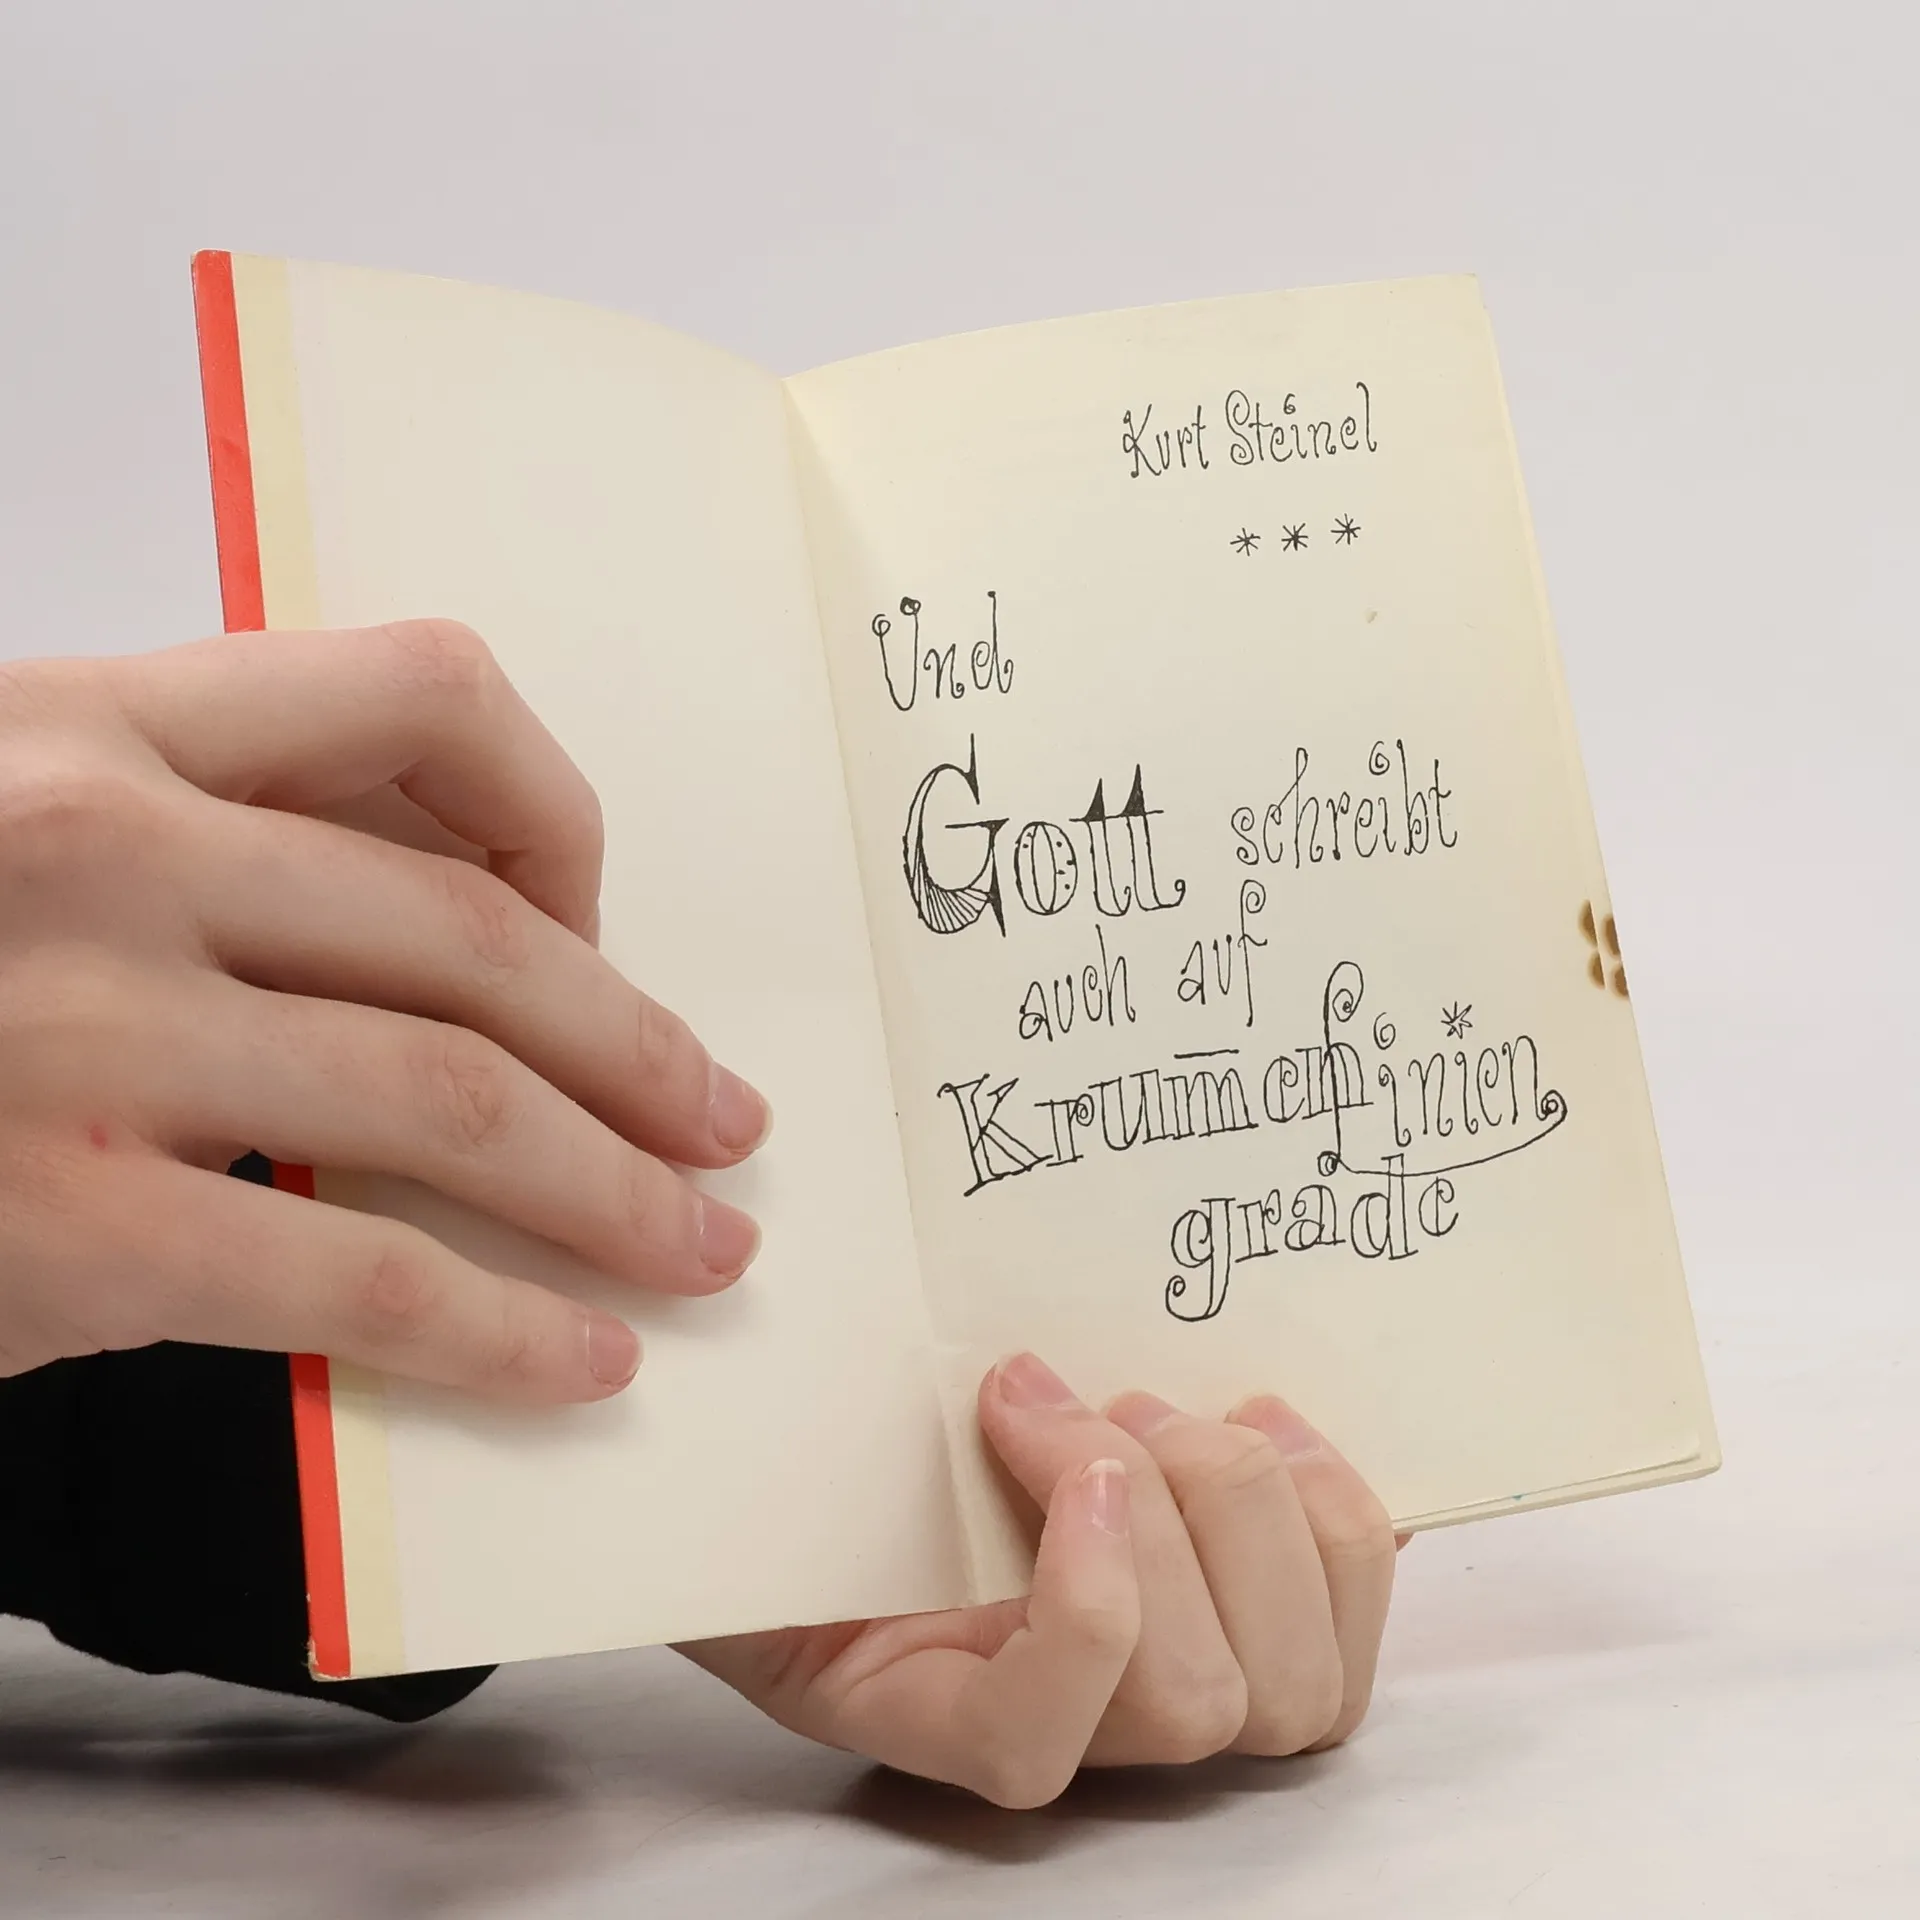 Kurt Steinel
* * *
Und
Gott schreibt
auch auf
Krum̅en Linien
grade